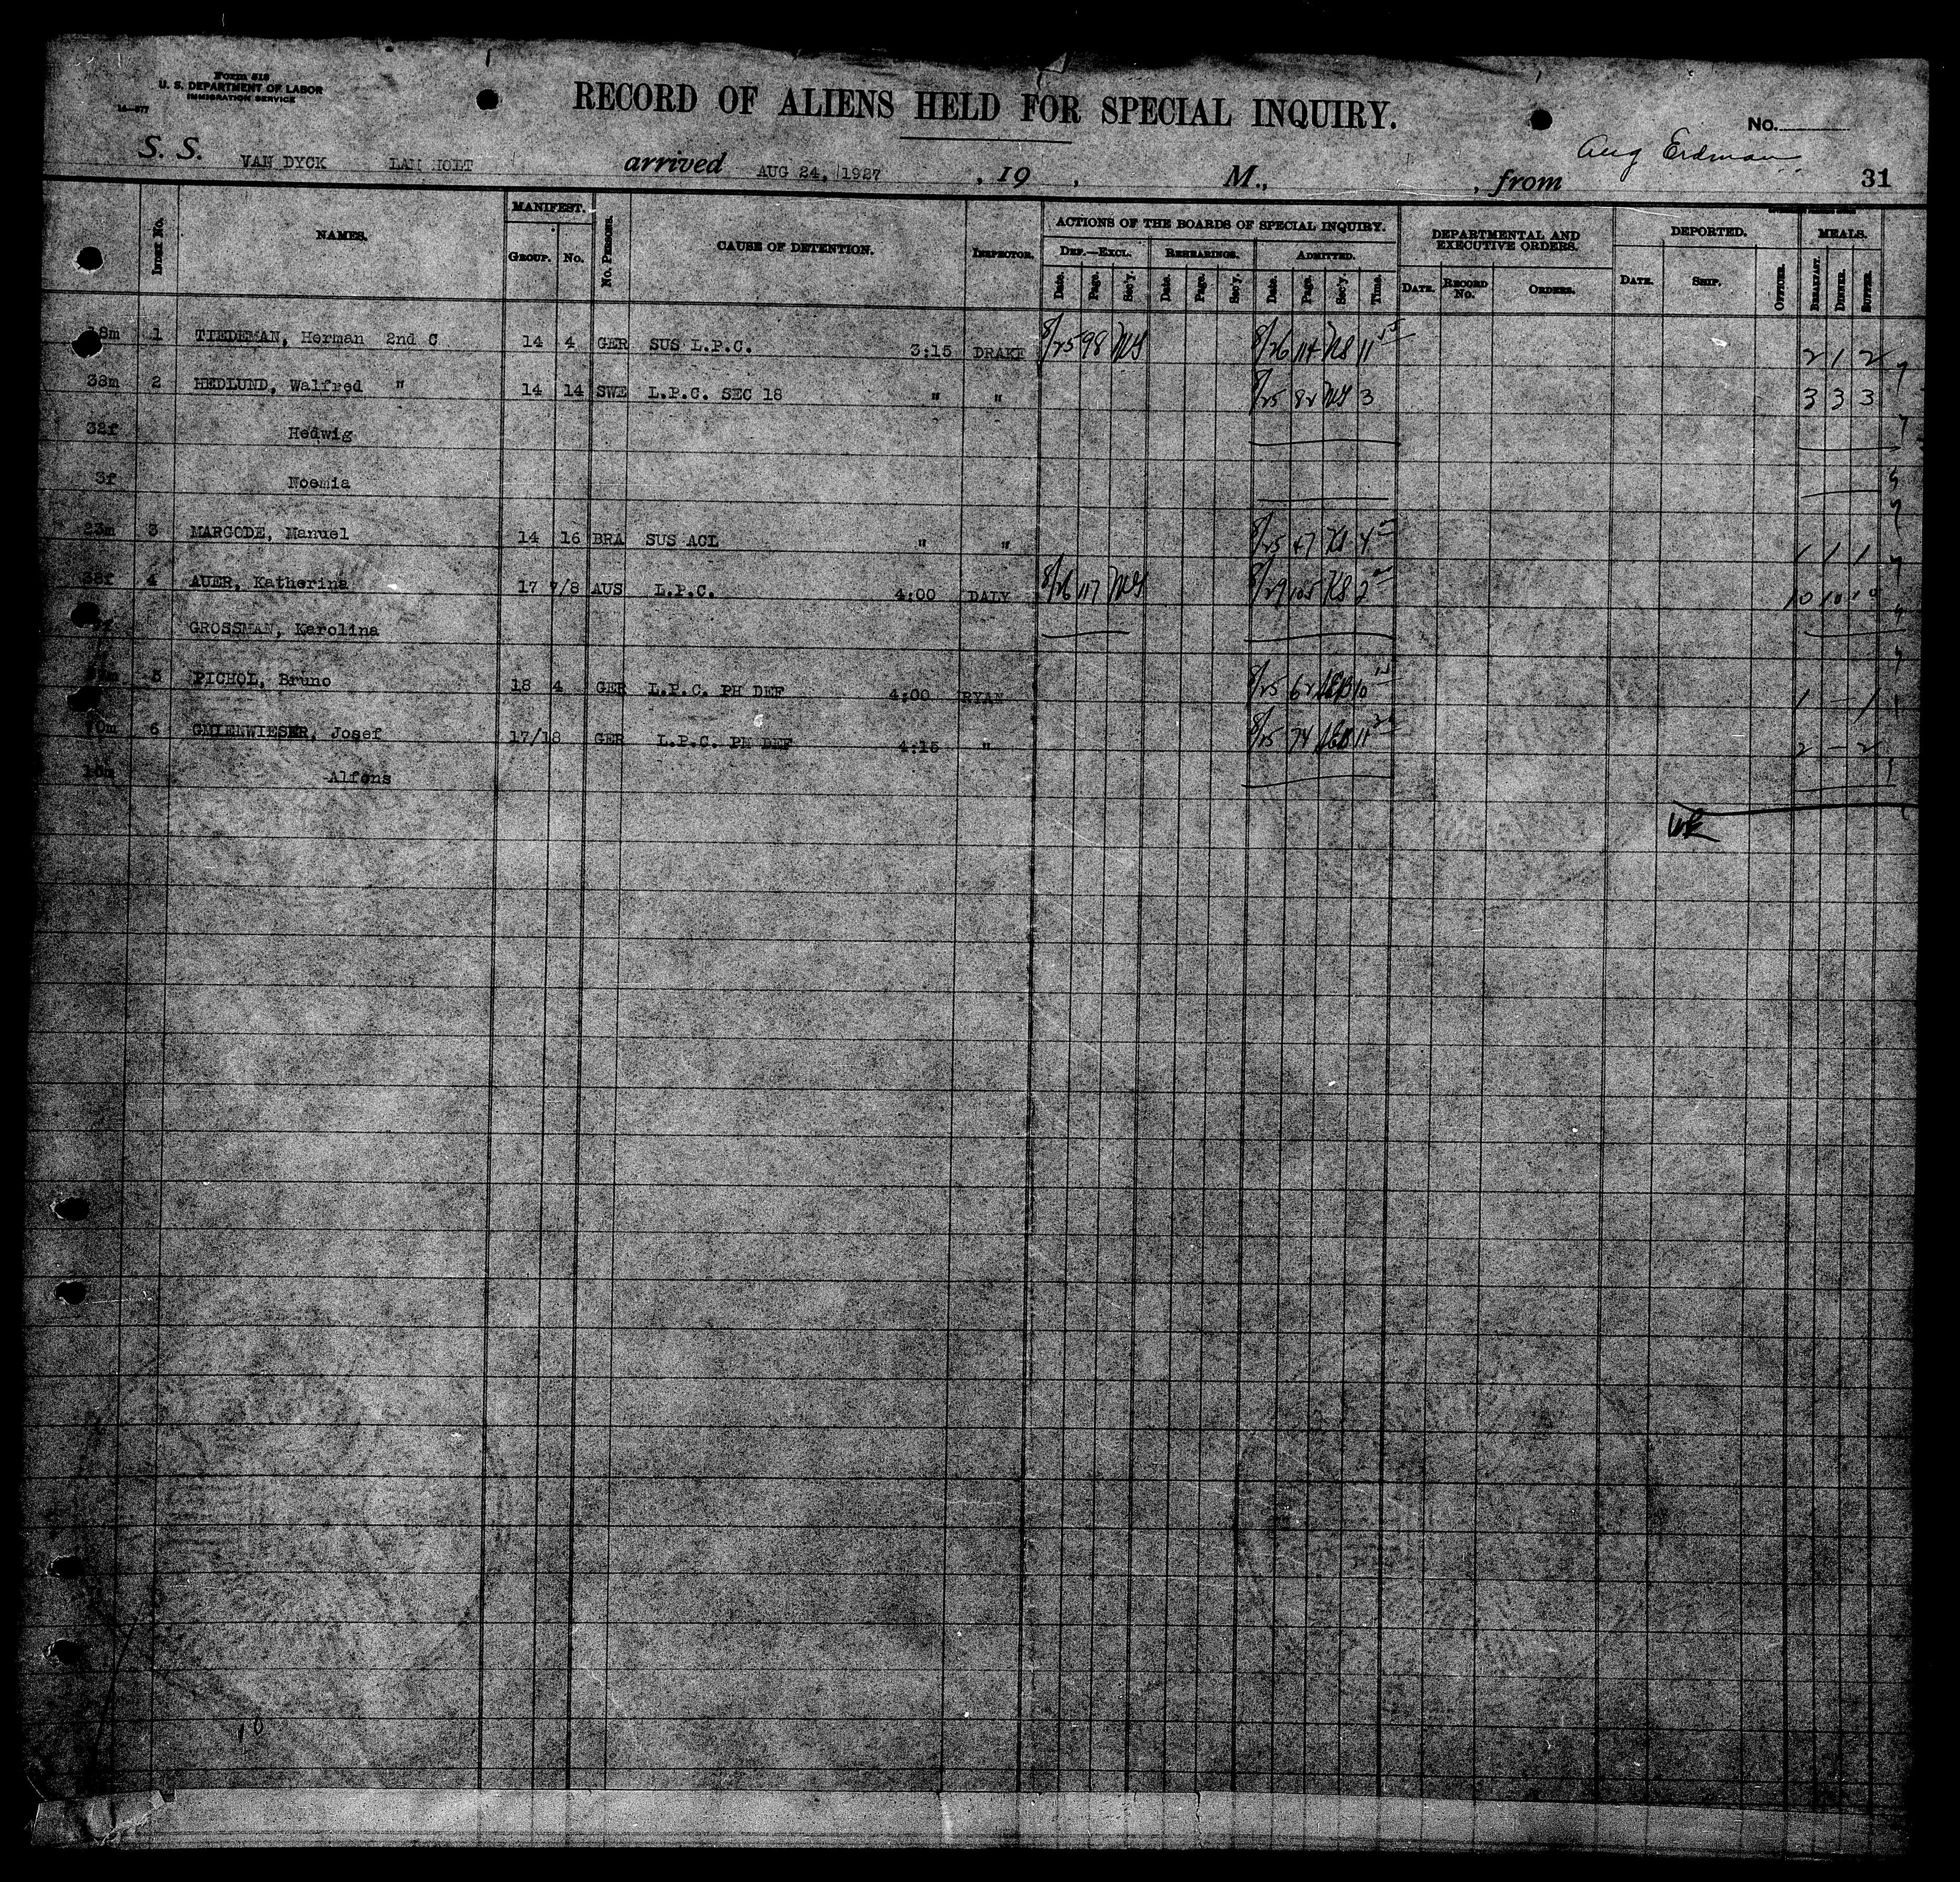 Form 518
U. S. DEPARTMENT OF LABOR
IMMIGRATION SERVICE
14—577
RECORD OF ALIENS HELD FOR SPECIAL INQUIRY.
No.
Aug Erdman
S. S. VAN DYCK LAM HOLT arrived AUG 24, 1927 , 19 , M., , from
31
INDEX No. NAMES. MANIFEST. GROUP. No. No. PERSONS. CAUSE OF DETENTION. INSPECTOR. ACTIONS OF THE BOARDS OF SPECIAL INQUIRY. DEPARTMENTAL AND EXECUTIVE ORDERS. DEPORTED. MEALS.
DEF.—EXCL. REHEARINGS. ADMITTED.
Date. Page. Sec'y. Date. Page. Sec'y. Date. Page. Sec'y. Time. DATE. RECORD No. ORDERS. DATE. SHIP. OFFICER. BREAKFAST. DINNER. SUPPER.
1 TIEDEMAN, Herman 2nd C 14 4 GER SUS L.P.C. 3:15 DRAKE 8/25 98 8/26 114 11 2 1 2
38m 2 HEDLUND, Walfred " 14 14 SWE L.P.C. SEC 18 " " 8/25 82 3 3 3 3
32f Hedwig
3f Noemia
23m 3 MARGODE, Manuel 14 16 BRA SUS ACL " " 8/25 47 4 1 1 1
38f 4 AUER, Katherina 17 7/8 AUS L.P.C. 4:00 DALY 8/26 117 8/29 105 2 10 10 10
GROSSMAN, Karolina
5 PICHOL, Bruno 18 4 GER L.P.C. PH DEF 4:00 RYAN 8/25 62 10 1 — 1
6 GMIENWIESER, Josef 17/18 GER L.P.C. PH DEF 4:15 " 8/25 74 11 2 — 2
Alfons
10